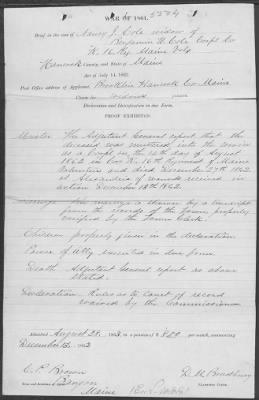 WAR OF 1861.
Brief in the case of Nancy J. Cole widow of
Benjamin H. Cole Corpl Co
K. 16 Reg. Maine Vols
Hancock County, and State of Maine
Act of July 14, 1862.
Post Office address of Applicant Brooklin Hancock Co Maine
Claim for widows
Declaration and Identification in due Form.
PROOF EXHIBITED.
Muster The Adjutant General report that the
deceased was mustered into the service
as a Corpl on the 14th day of August
1862 in Co. K. 16th Regiment of Maine
Volunteers and died December 27th 1862
at Alexandria of wounds received in
action December 13th 1862.
Marriage
from the records of the town properly
certified by the Town Clerk.
Children properly given in the declaration
Power of Atty executed in due form
Death Adjutant General report as above
stated.
Declaration Rules as to Court of record
waived by the Commissioner
Admitted August 28 1863, to a pension of $8.00 per month, commencing
December 1862
C. P. Brown
Bangor
Maine
D. W. Bradbury